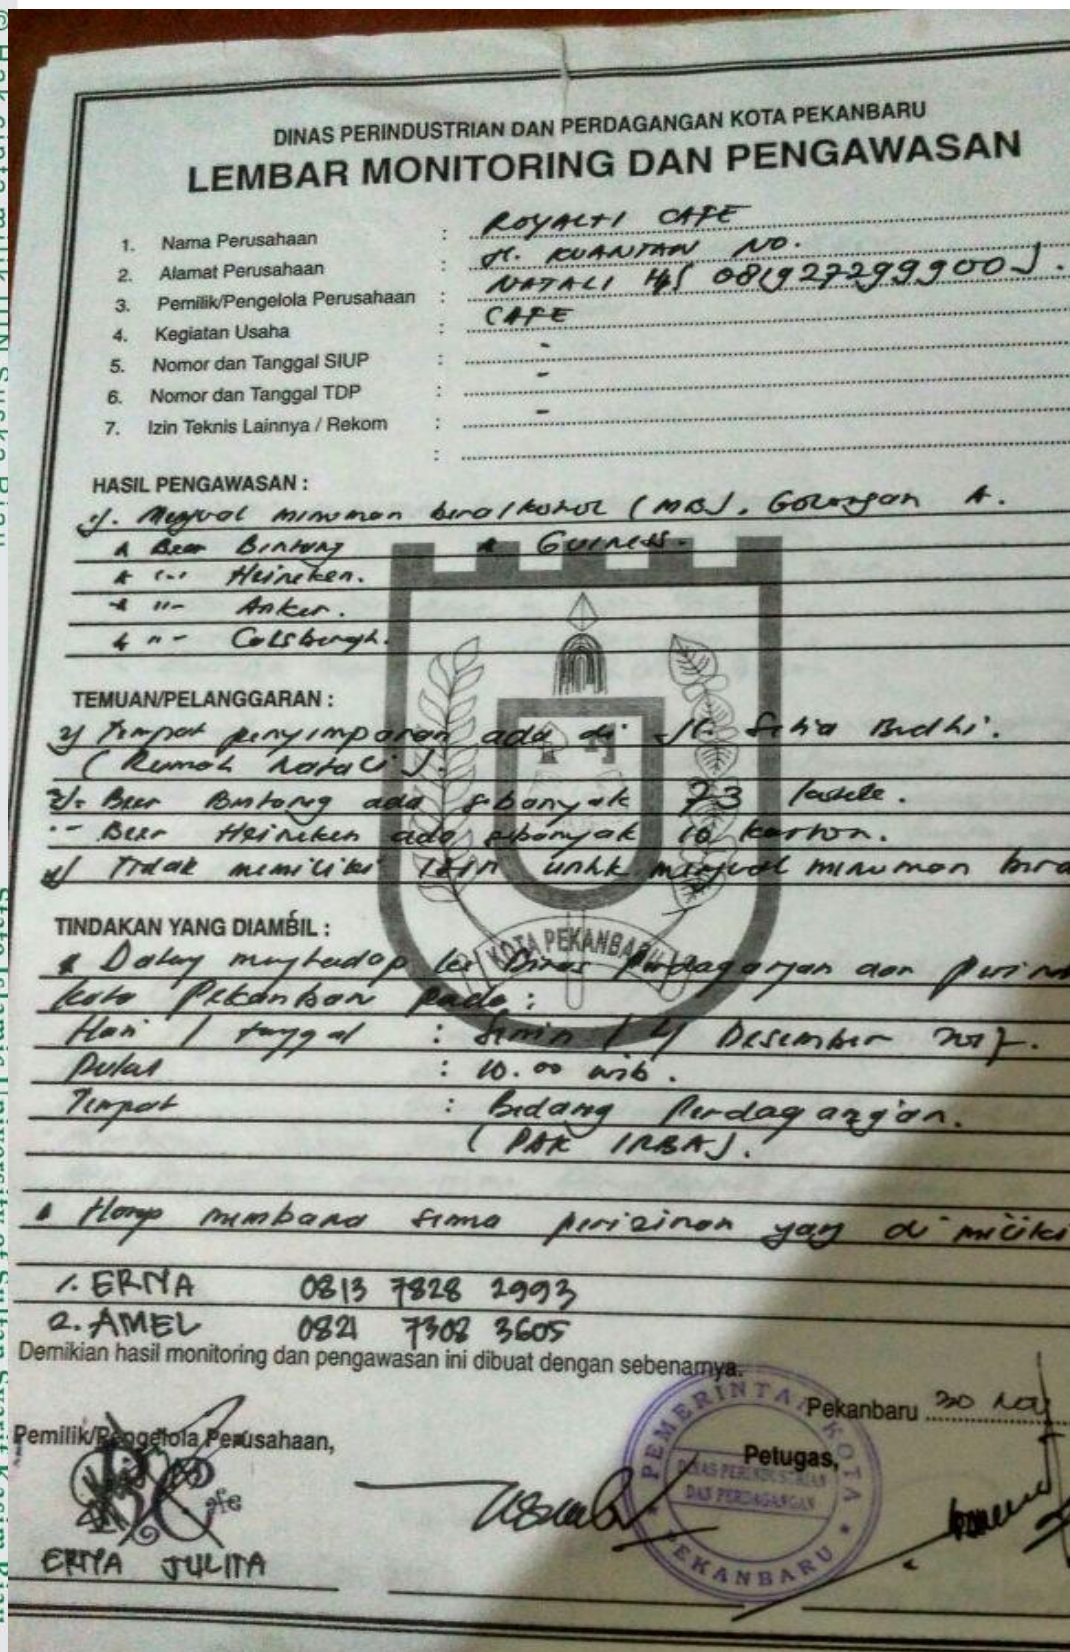 DINAS PERINDUSTRIAN DAN PERDAGANGAN KOTA PEKANBARU
LEMBAR MONITORING DAN PENGAWASAN
1. Nama Perusahaan : ROYALTI CAFE
2. Alamat Perusahaan : Jl. KUANTAN NO.
3. Pemilik/Pengelola Perusahaan : NATALI Hp 081927299900).
4. Kegiatan Usaha : CAFE
5. Nomor dan Tanggal SIUP : -
6. Nomor dan Tanggal TDP : -
7. Izin Teknis Lainnya / Rekom : -
:
HASIL PENGAWASAN :
1). Menjual minuman beralkohol (MB). Golongan A.
Beer Bintang Guiness.
Heineken.
-"- Anker.
-"- Calsbergh.
TEMUAN/PELANGGARAN :
2) Tempat penyimpanan ada di Jl. Setia Budhi.
(Rumah Natali).
3). Beer Bintang ada sebanyak 73
-- Beer Heineken ada sebanyak 10 karton.
Tidak memiliki izin untk menjual minuman bera
TINDAKAN YANG DIAMBIL :
Datang menghadap ke Dinas Perdagangan dan Perind
Kota Pekanbaru pada :
Hari / tanggal : Senin / 4 Desember 2017.
Pukul : 10.00 wib.
Tempat : Bidang Perdagangan.
(PAK IRBA).
Harap membawa semua perizinan yang di miliki
KOTA PEKANBARU
1. ERNA 0813 7828 2993
2. AMEL 0821 7308 3605
Demikian hasil monitoring dan pengawasan ini dibuat dengan sebenarnya.
Pekanbaru 30 Nov
Pemilik/Pengelola Perusahaan,
Petugas,
PEMERINTAH KOTA
DINAS PERINDUSTRIAN
DAN PERDAGANGAN
PEKANBARU
ERNA JULITA